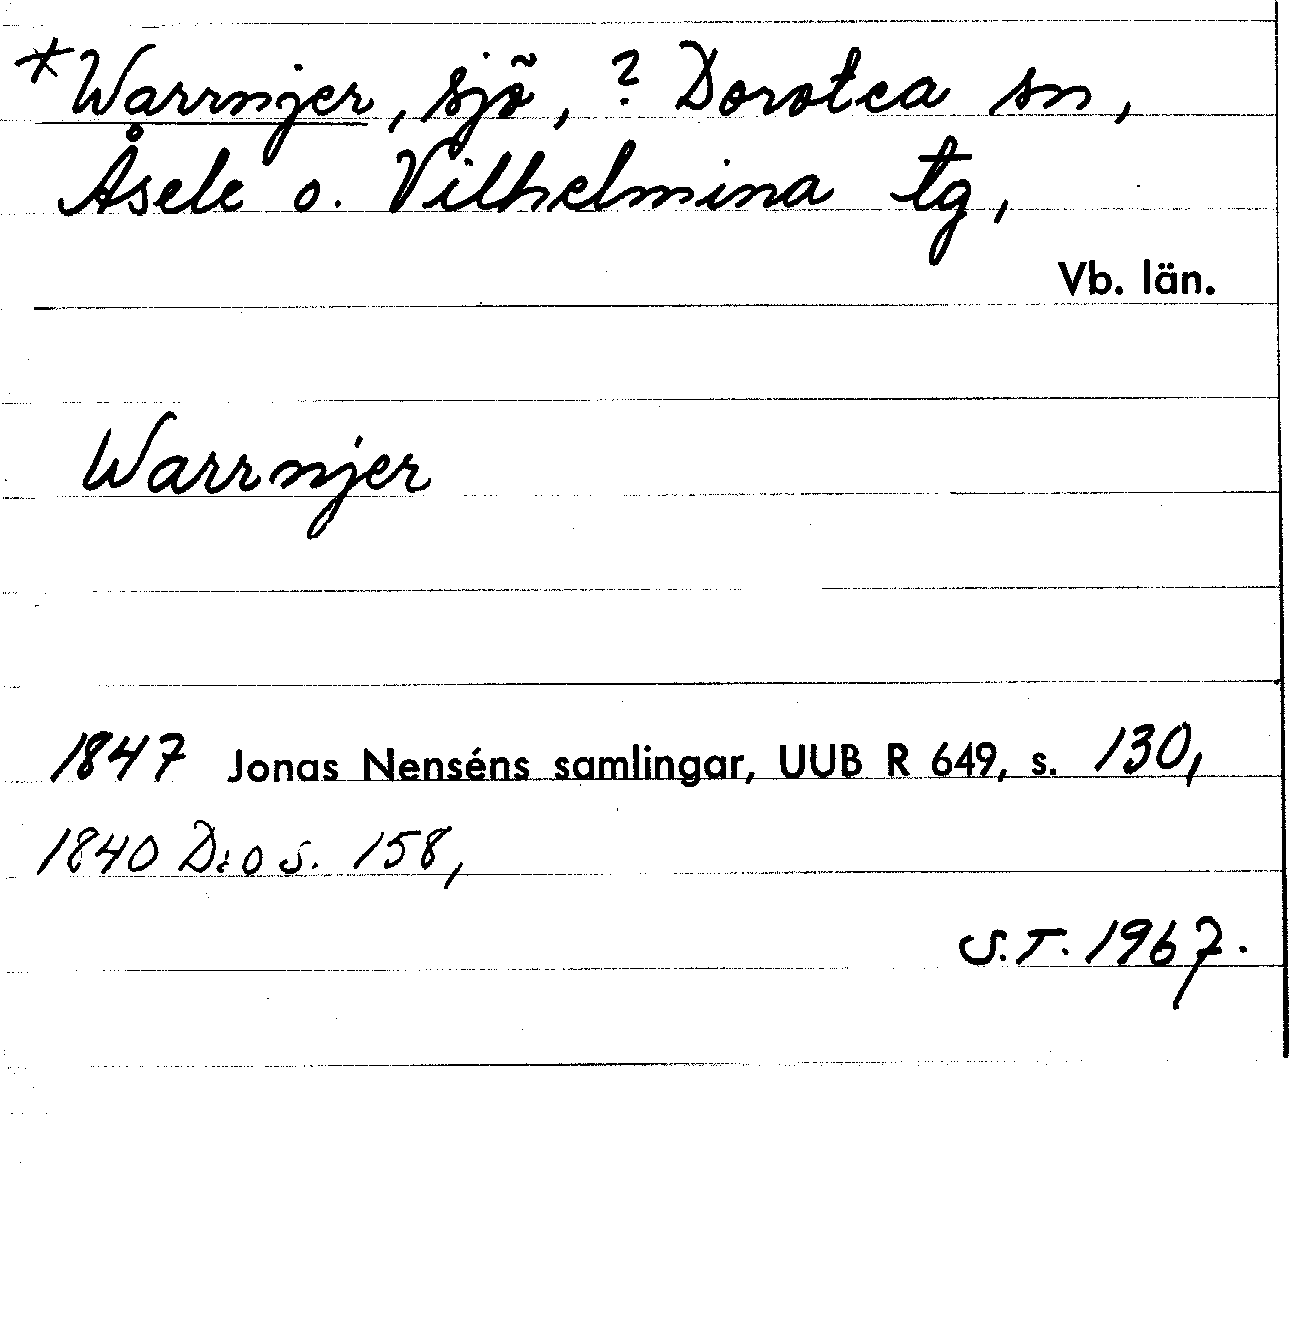 *Warrnjer, sjö, ? Dorotea sn,
Åsele o. Vilhelmina tg,
Vb. län.
Warrnjer
1847 Jonas Nenséns samlingar, UUB R 649, s. 130,
1840 D:o s. 158,
S.T. 1967.